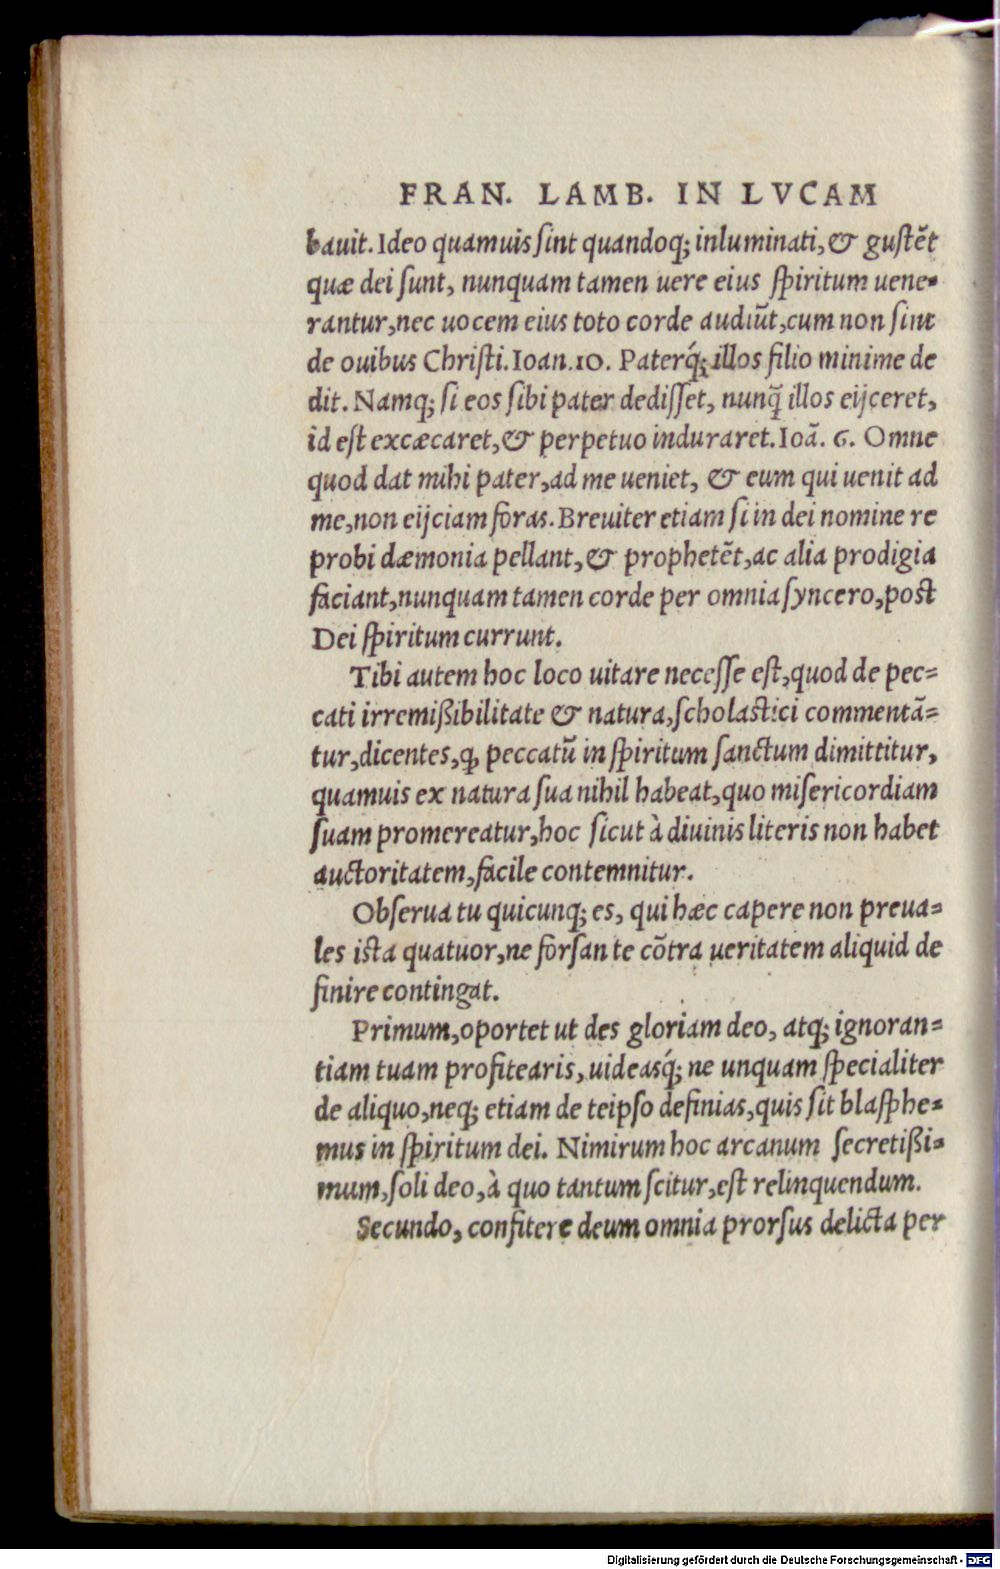 FRAN. LAMB. IN LVCAM
bauit. Ideo quamuis ſint quandoq; inluminati, & guſtēt
quæ dei ſunt, nunquam tamen uere eius ſpiritum uene-
rantur, nec uocem eius toto corde audiūt, cum non ſint
de ouibus Chriſti. Ioan. 10. Paterq́; illos filio minime de
dit. Namq; ſi eos ſibi pater dediſſet, nunq̃ illos eijceret,
id eſt excæcaret, & perpetuo induraret. Ioã. 6. Omne
quod dat mihi pater, ad me ueniet, & eum qui uenit ad
me, non eijciam foras. Breuiter etiam ſi in dei nomine re
probi dæmonia pellant, & prophetēt, ac alia prodigia
faciant, nunquam tamen corde per omnia ſyncero, poſt
Dei ſpiritum currunt.
Tibi autem hoc loco uitare neceſſe eſt, quod de pec=
cati irremißibilitate & natura, ſcholaſtici commentã=
tur, dicentes, ꝙ peccatū in ſpiritum ſanctum dimittitur,
quamuis ex natura ſua nihil habeat, quo miſericordiam
ſuam promereatur, hoc ſicut à diuinis literis non habet
auctoritatem, facile contemnitur.
Obſerua tu quicunq; es, qui hæc capere non preua=
les iſta quatuor, ne forſan te cõtra ueritatem aliquid de
finire contingat.
Primum, oportet ut des gloriam deo, atq; ignoran=
tiam tuam profitearis, uideasq́; ne unquam ſpecialiter
de aliquo, neq; etiam de teipſo definias, quis ſit blaſphe=
mus in ſpiritum dei. Nimirum hoc arcanum ſecretißi=
mum, ſoli deo, à quo tantum ſcitur, eſt relinquendum.
Secundo, confitere deum omnia prorſus delicta per
Digitalisierung gefördert durch die Deutsche Forschungsgemeinschaft - DFG